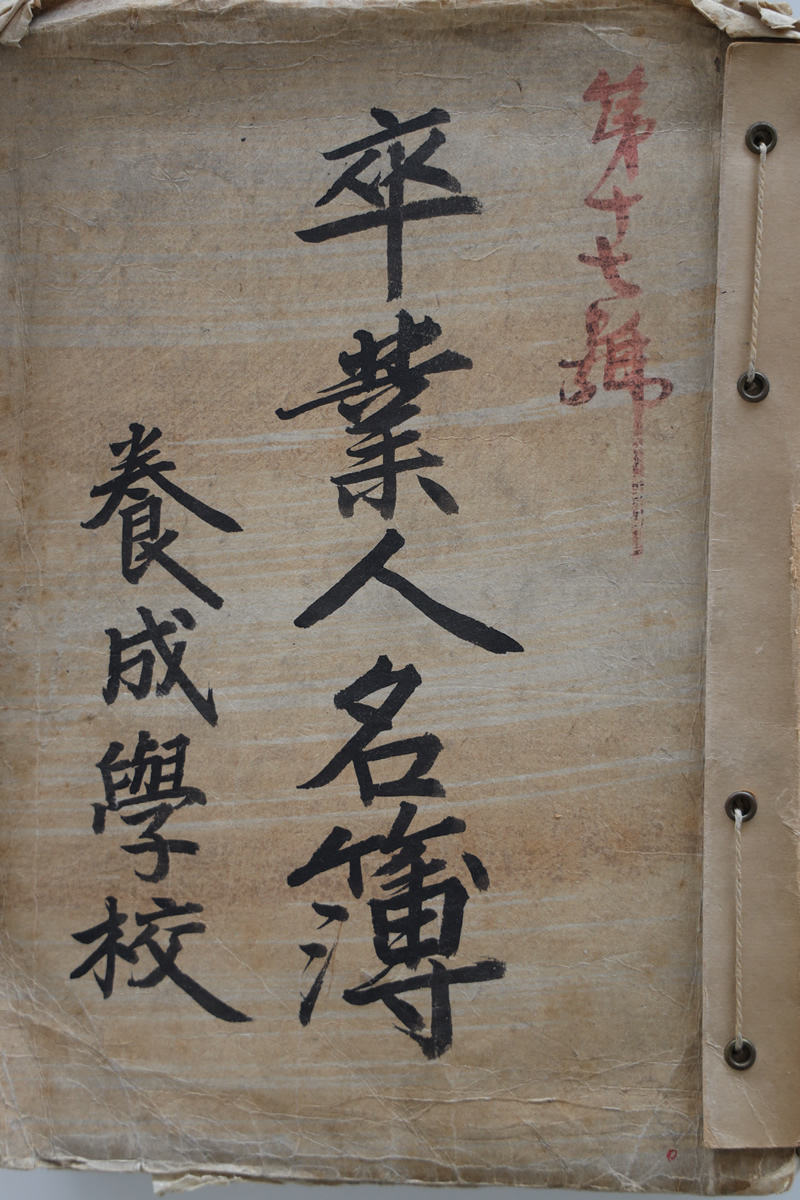 第十七號
卒業人名簿
養成學校